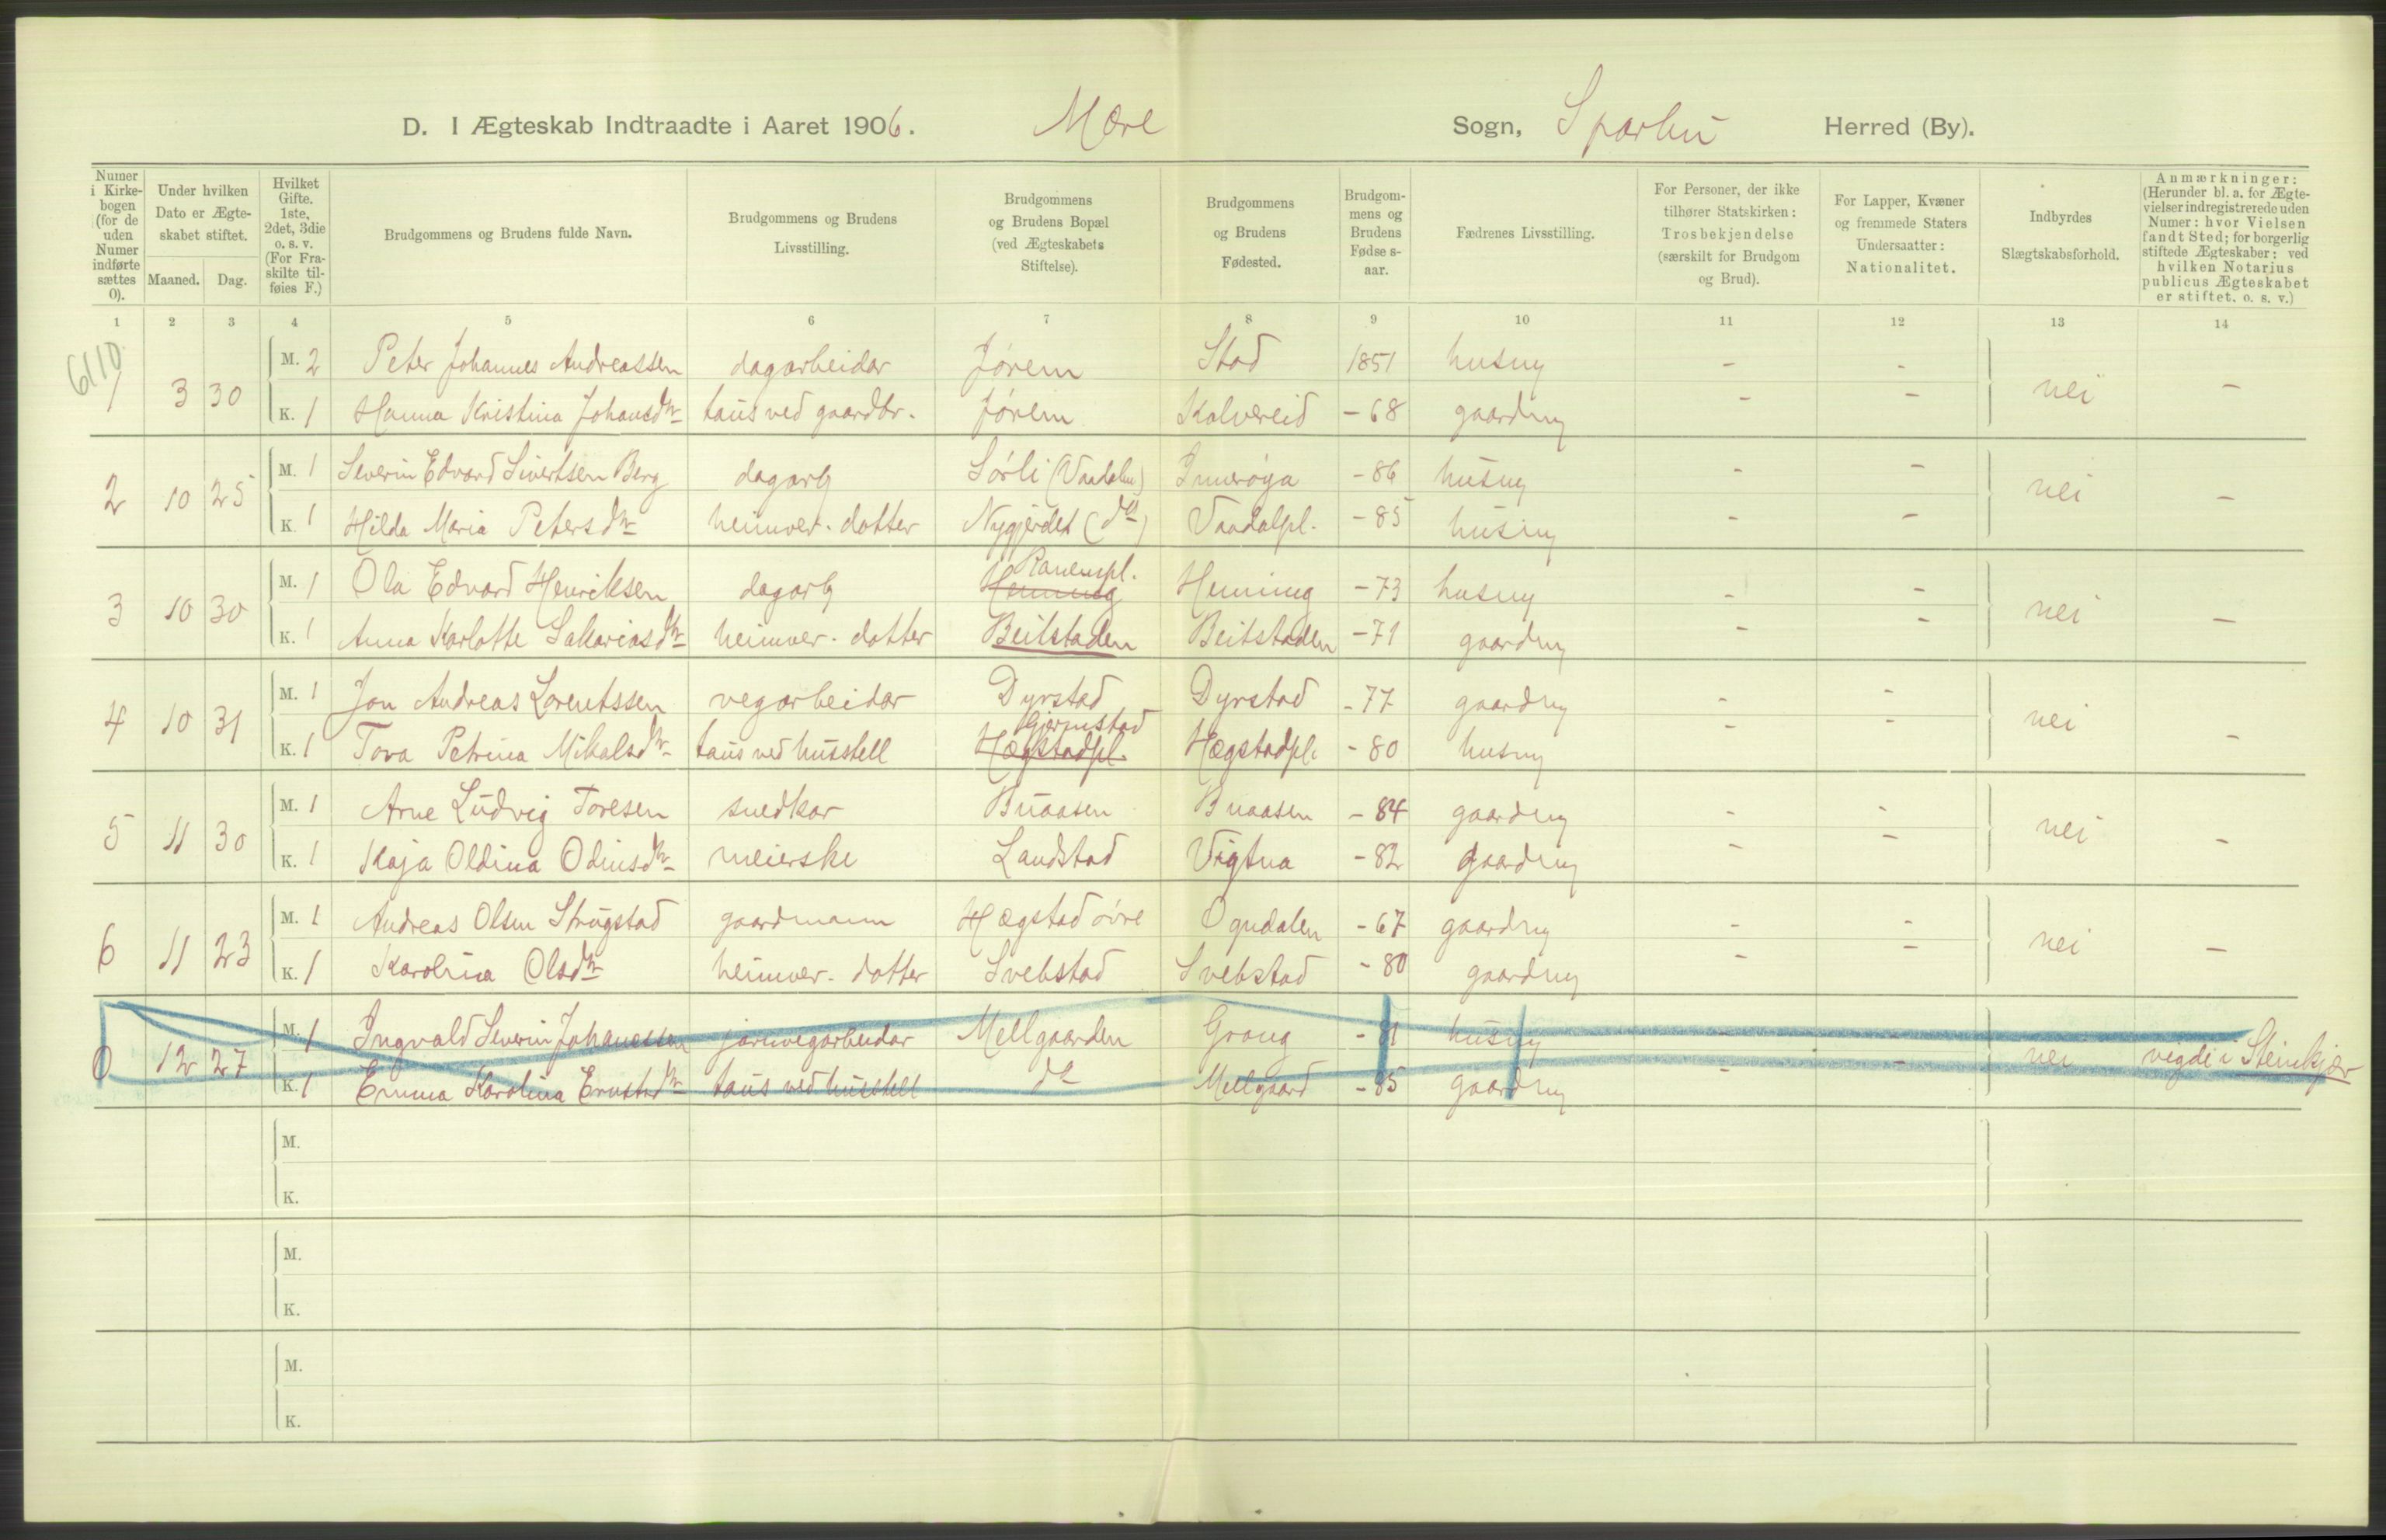 D. I Ægteskab Indtraadte i Aaret 1906. Mære Sogn, Sparbu Herred (By).
Numer i Kirke-bogen (for de uden Numer indførte sættes 0).
Under hvilken Dato er Ægte-skabet stiftet.
Maaned. Dag.
Hvilket Gifte. 1ste, 2det, 3die o. s. v. (For Fra-skilte til-føies F.)
Brudgommens og Brudens fulde Navn.
Brudgommens og Brudens Livsstilling.
Brudgommens og Brudens Bopæl (ved Ægteskabets Stiftelse).
Brudgommens og Brudens Fødested.
Brudgom-mens og Brudens Fødse s-aar.
Fædrenes Livsstilling.
For Personer, der ikke tilhører Statskirken: Trosbekjendelse (særskilt for Brudgom og Brud).
For Lapper, Kvæner og fremmede Staters Undersaatter: Nationalitet.
Indbyrdes Slægtskabsforhold.
Anmærkninger: (Herunder bl. a. for Ægte-vielser indregistrerede uden Numer: hvor Vielsen fandt Sted; for borgerlig stiftede Ægteskaber: ved hvilken Notarius publicus Ægteskabet er stiftet. o. s. v.)
1 2 3 4 5 6 7 8 9 10 11 12 13 14
6/10
M. 2 Peter Johannes Andreassen dagarbeidar Jørem Stod 1851 husmy - -
1 3 30 nei -
K. 1 Hanna Kristina Johansdtr taus ved gaardbr. Jørem Kalvereid - 68 gaardmy - -
M. 1 Severin Edvard Sivertsen Berg dagarb Sørli (Verdalen) Inderøya - 86 husmy - -
2 10 25 nei -
K. 1 Hilda Maria Petersdtr heimver. dotter Nygjerdet (do) Vaadalpl. - 85 husmy - -
M. 1 Ola Edvard Henriksen dagarb Henning Ranempl. Henning - 73 husmy - -
3 10 30 nei -
K. 1 Anna Karlotte Sakariasdtr heimver. dotter Beitstaden Beitstaden - 71 gaardmy - -
M. 1 Jon Andreas Lorentssen vegarbeidar Dyrstad Dyrstad - 77 gaardmy - -
4 10 31 nei -
K. 1 Tova Petrina Mikalsdtr taus ved husstell Hægstadpl. Gjørmstad Hægstadpl. - 80 husmy - -
M. 1 Arne Ludvig Toresen snedkar Buaasen Buaasen - 84 gaardmy - -
5 11 30 nei -
K. 1 Kaja Oldina Odinsdtr meierske Landstad Vigtna - 82 gaardmy - -
M. 1 Andreas Olsen Strugstad gaardmann Hægstad øvre Ogndalen - 67 gaardmy - -
6 11 23 nei -
K. 1 Karolina Olsdtr heimver. dotter Svebstad Svebstad - 80 gaardmy - -
M. 1 Ingvald Severin Johanessen jarnvegarbeidar Mellgaarden Grong - 81 husmy - -
0 12 27 nei vigde i Steinkjær
K. 1 Emma Karolina Ernstsdtr taus ved husstell do Mellgaard - 85 gaardmy - -
M.
K.
M.
K.
M.
K.